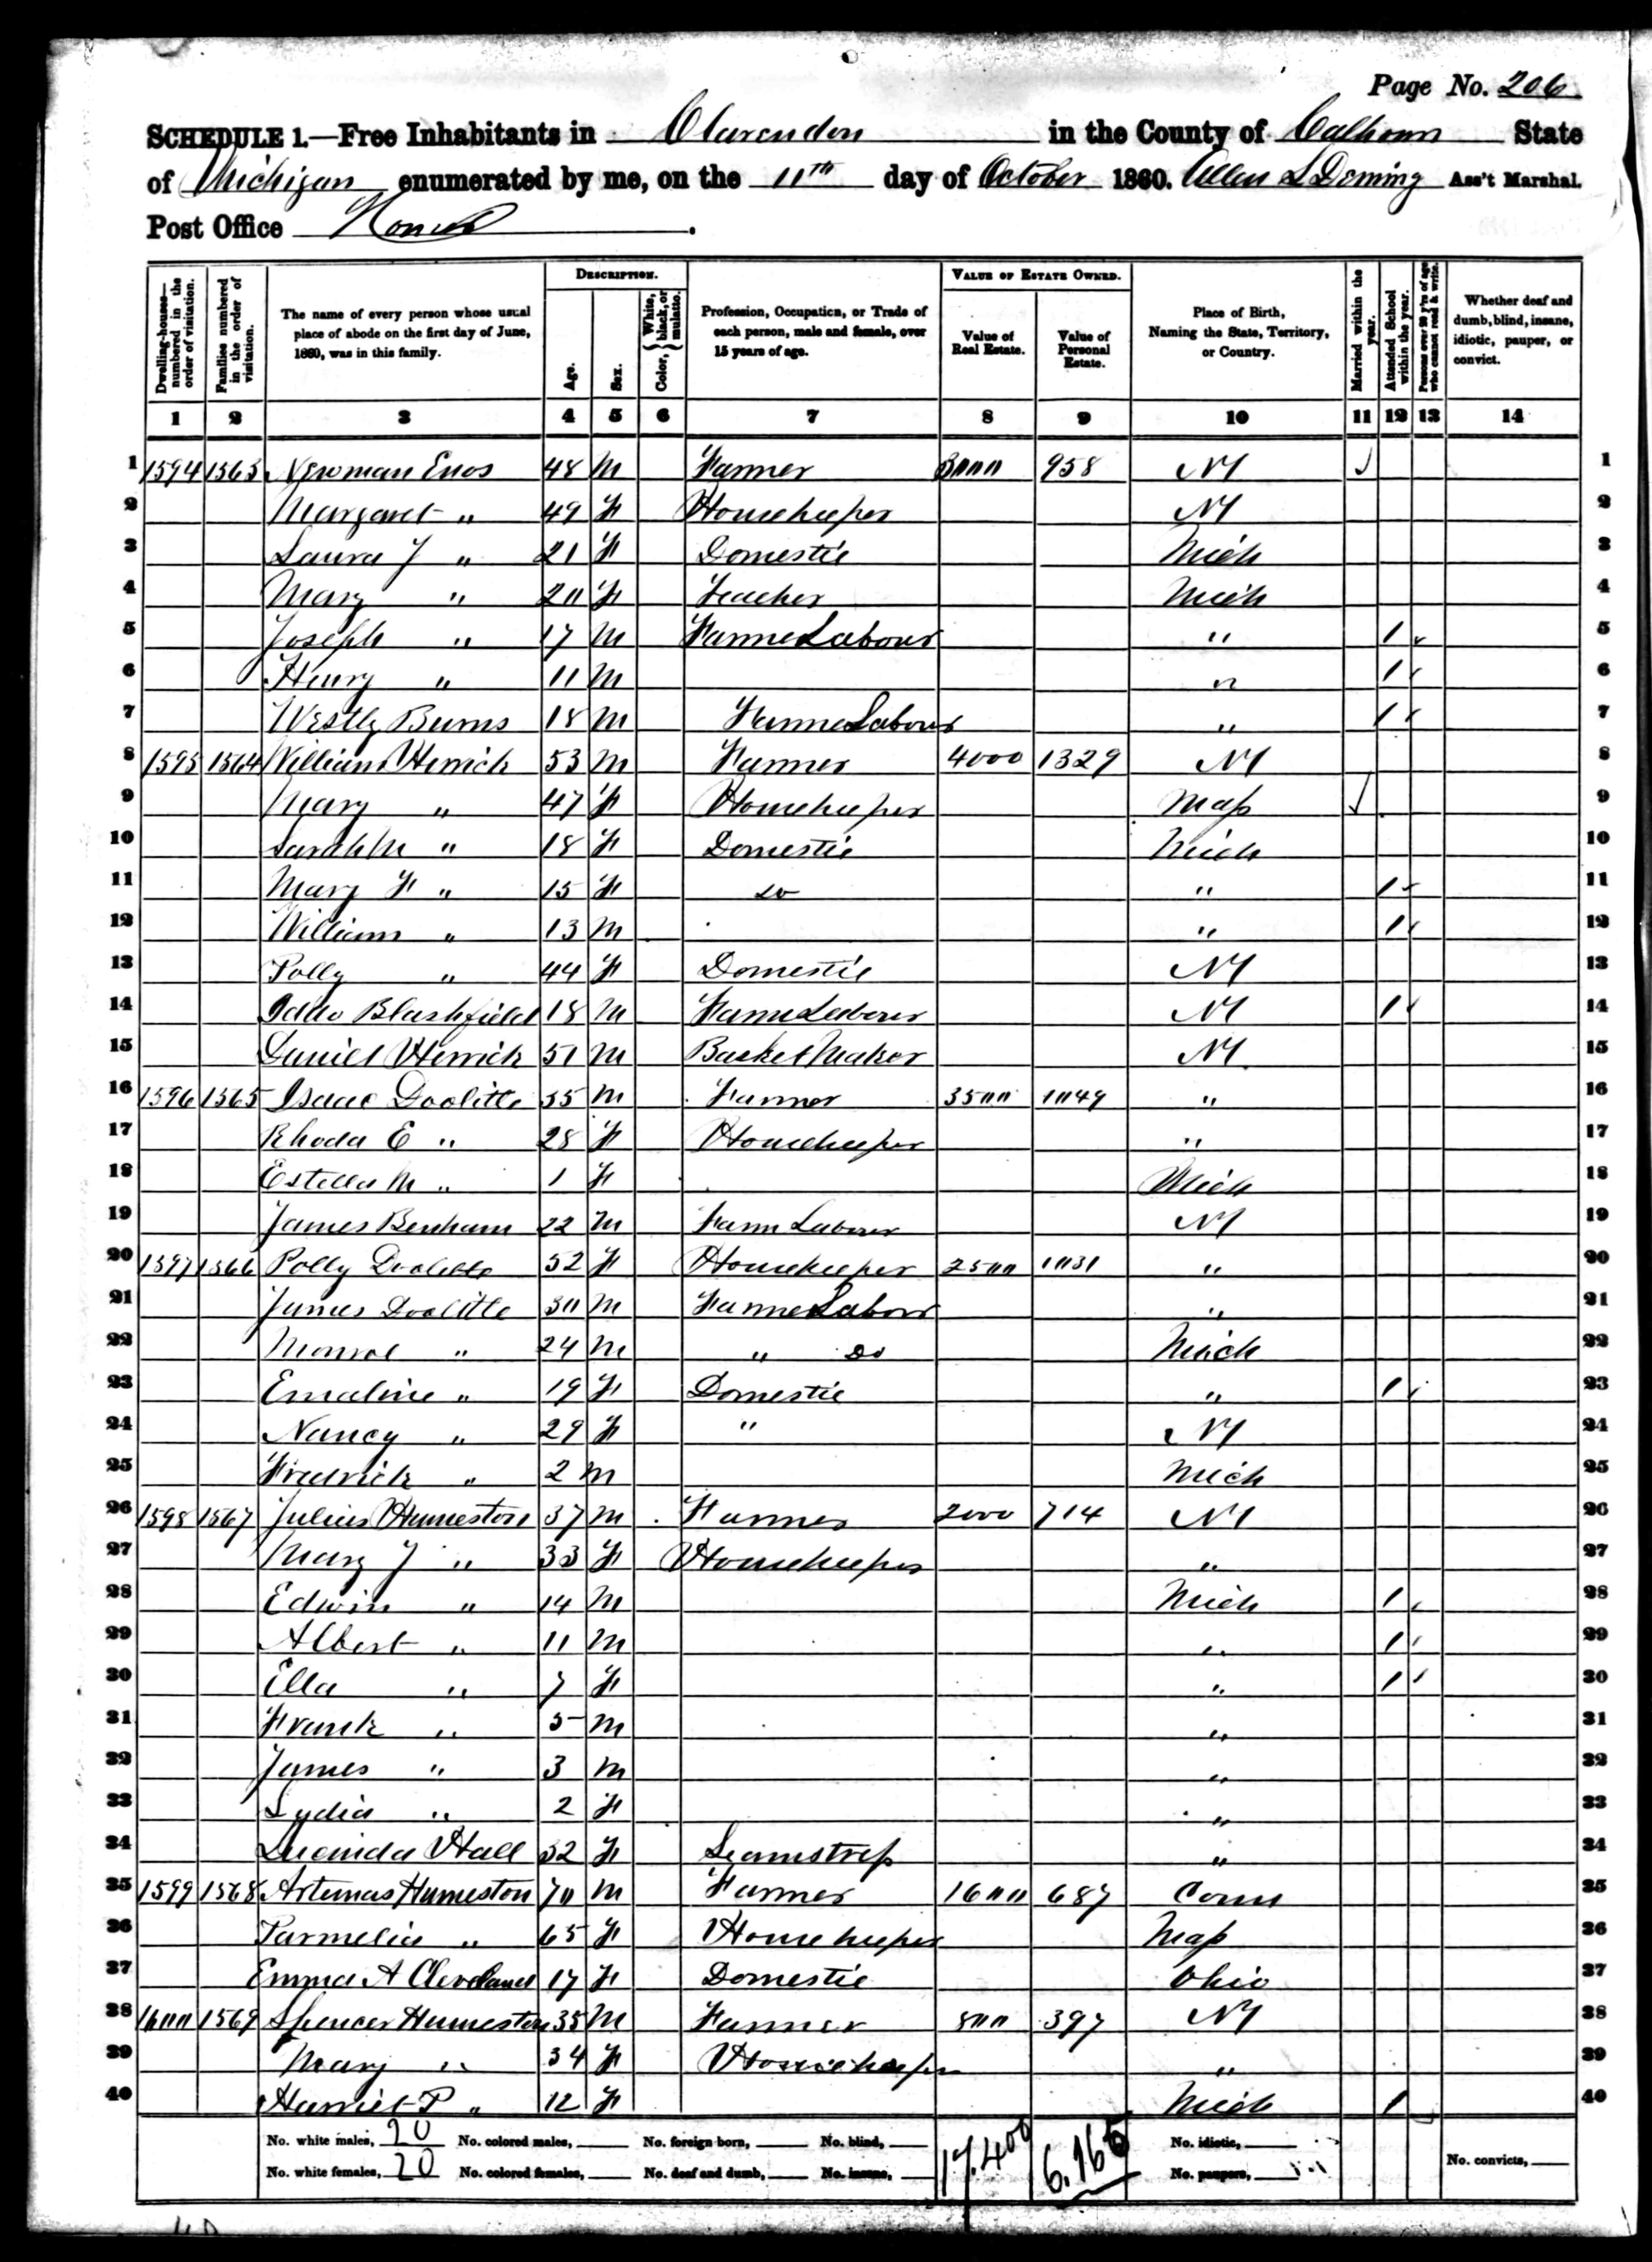 Page No. 206
SCHEDULE 1.—Free Inhabitants in Clarendon in the County of Calhoun State
of Michigan enumerated by me, on the 11th day of October 1860. Allen S Deming Ass't Marshal.
Post Office
Dwelling-houses—numbered in the order of visitation. Families numbered in the order of visitation. The name of every person whose usual place of abode on the first day of June, 1860, was in this family. DESCRIPTION. Age. Sex. Color, { White, black, or mulatto. Profession, Occupation, or Trade of each person, male and female, over 15 years of age. VALUE OF ESTATE OWNED. Value of Real Estate. Value of Personal Estate. Place of Birth, Naming the State, Territory, or Country. Married within the year. Attended School within the year. Persons over 20 y'rs of age who cannot read & write. Whether deaf and dumb, blind, insane, idiotic, pauper, or convict.
1 2 3 4 5 6 7 8 9 10 11 12 13 14
1 1594 1563 Newman Enos 48 M Farmer 3000 958 NY 1
2 Margaret " 49 F Housekeeper NY 2
3 Laura J " 21 F Domestic Mich 3
4 Mary " 20 F Teacher Mich 4
5 Joseph " 17 M Farme Labour " 1 5
6 Henry " 11 M " 1 6
7 Westly Burns 18 M Farme Labour " 1 7
8 1595 1564 William Herrick 53 M Farmer 4000 1329 NY 8
9 Mary " 47 F Housekeeper Mass 9
10 Sarah M " 18 F Domestic Mich 10
11 Mary F " 15 F do " 1 11
12 William " 13 M " 1 12
13 Polly " 44 F Domestic NY 13
14 Blashfield 18 M Farm Labour NY 1 14
15 Daniel Herrick 51 M Basket Maker NY 15
16 1596 1565 Isaac Doolittle 35 M Farmer 3500 1049 " 16
17 Rhoda E " 28 F Housekeeper " 17
18 Estella M " 1 F Mich 18
19 James Benham 22 M Farm Labour NY 19
20 1597 1566 Polly Doolittle 52 F Housekeeper 2500 1031 " 20
21 James Doolittle 30 M Farme Labour " 21
22 Monroe " 24 M " Do Mich 22
23 Emaline " 19 F Domestic " 1 23
24 Nancy " 29 F " NY 24
25 Fredrick " 2 M Mich 25
26 1598 1567 Julius Humeston 37 M Farmer 2000 714 NY 26
27 Mary J " 33 F Housekeeper " 27
28 Edwin " 14 M Mich 1 28
29 Albert " 11 M " 1 29
30 Ella " 7 F " 1 30
31 Frank " 5 M " 31
32 James " 3 M " 32
33 Lydia " 2 F " 33
34 Lucinda Hall 32 F Seamstress " 34
35 1599 1568 Artemas Humeston 70 M Farmer 1600 687 Conn 35
36 Parmelia " 65 F Housekeeper Mass 36
37 Emma A Cleveland 17 F Domestic Ohio 37
38 1600 1569 Spencer Humeston 35 M Farmer 800 397 NY 38
39 Mary " 34 F Housekeeper " 39
40 Harriet P " 12 F Mich 1 40
No. white males, 20 No. colored males, No. foreign born, No. blind, 17.400 6.165 No. idiotic,
No. white females, 20 No. colored females, No. deaf and dumb, No. insane, No. paupers, No. convicts,